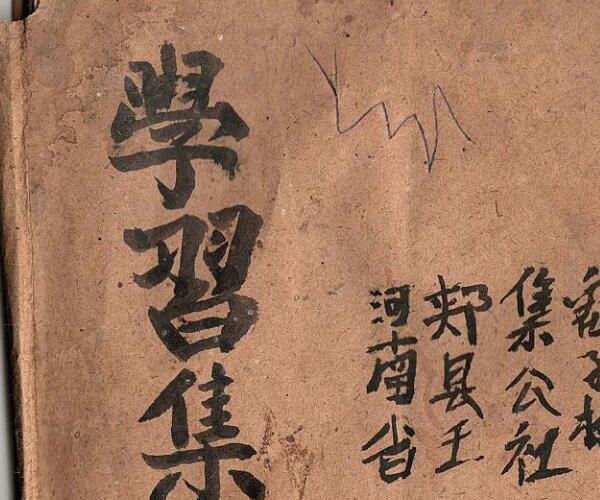 學習集
河南省
郏县王
集公社